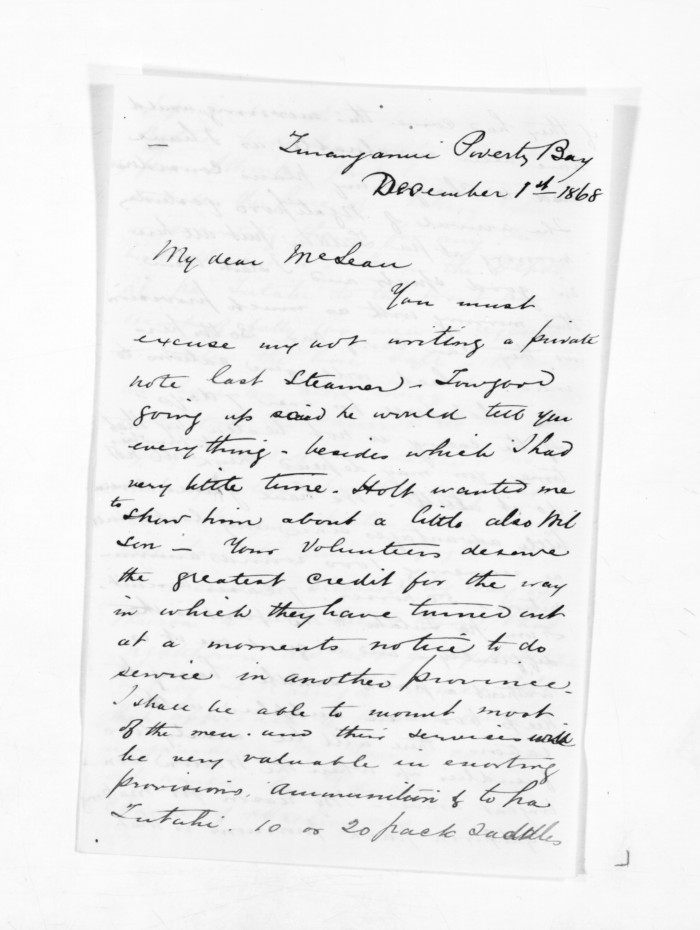 Turanganui Poverty Bay
December 1st 1868
My dear McLean
You must
excuse my not writing a private
note last Steamer - Towgood
going up said he would tell you
everything - besides which I had
very little time. Holt wanted me
to show him about a little also Wil
son - Your Volunteers deserve
the greatest credit for the way
in which they have turned out
at a moments notice to do
service in another province.
I shall be able to mount most
of the men. and their services will
be very valuable in escorting
provisions. Ammunition & to ha
Tutahi. 10 or 20 pack Saddles